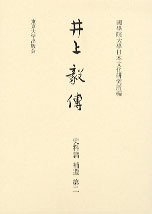 國學院大學日本文化研究所編
井上毅傳
史料篇 補遺 第二
東京大学出版会